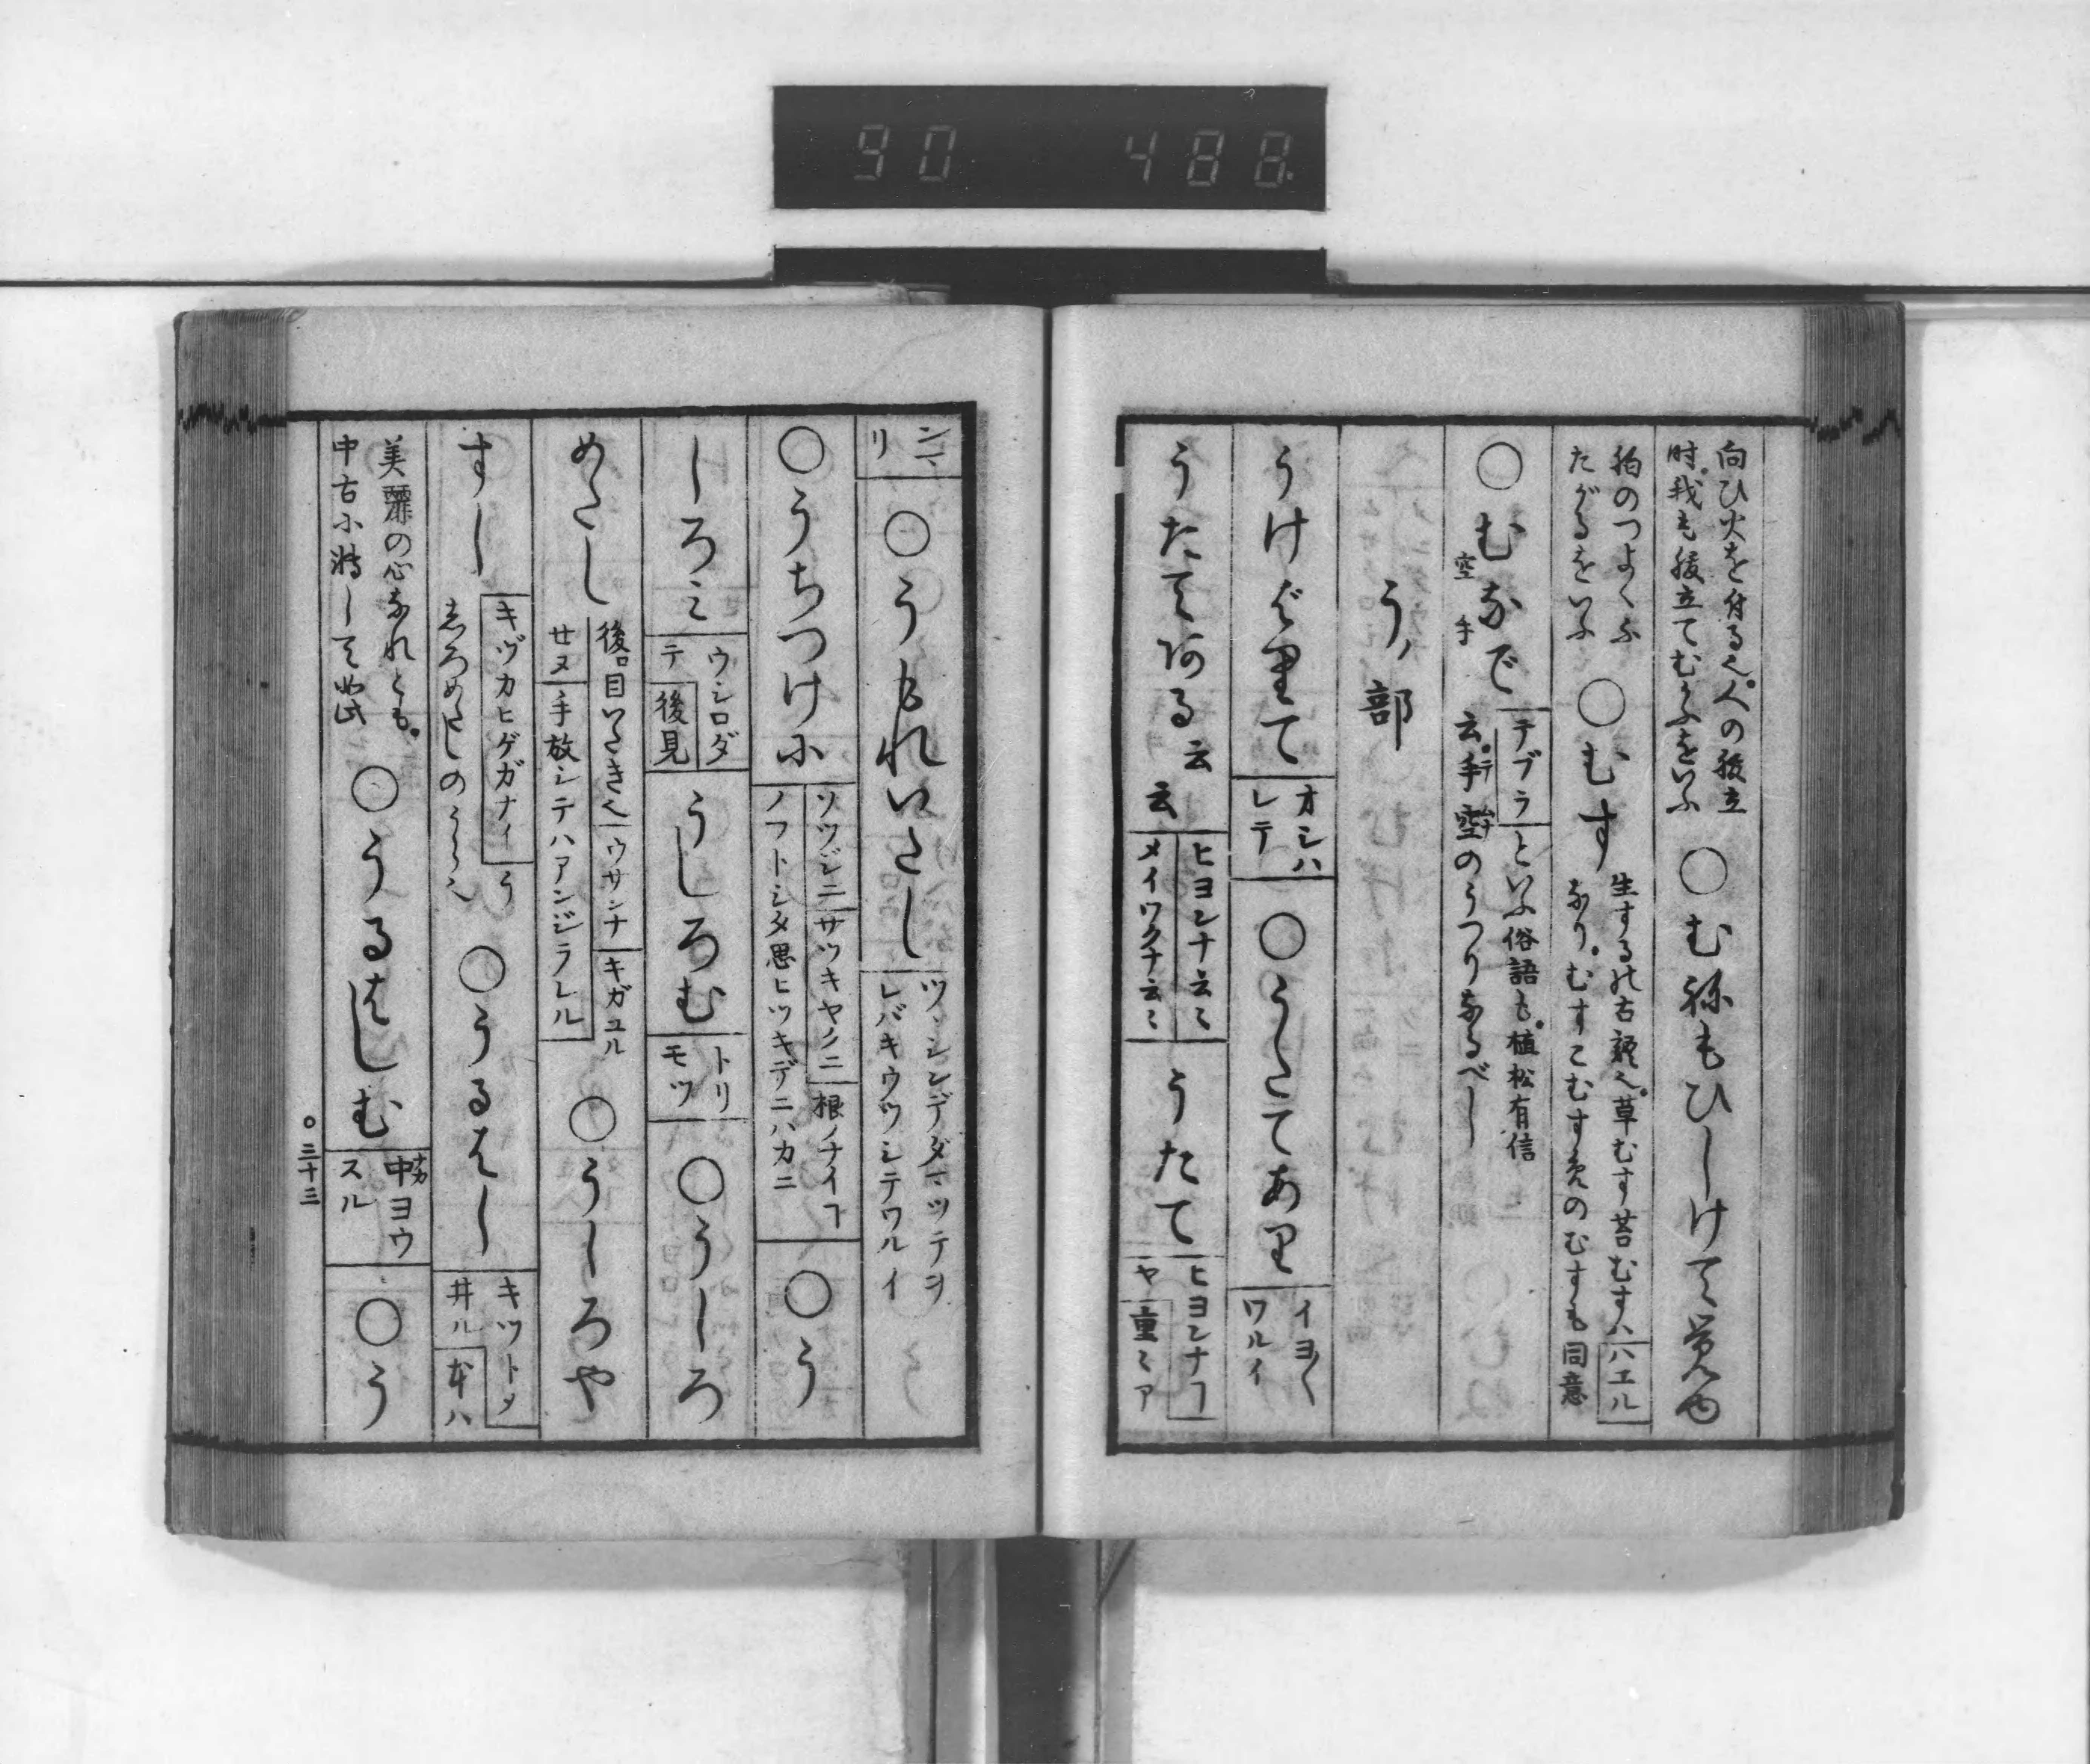 90 488
向ひ火を付る也。人の腹立
時。我も腹立てむかふをいふ
○むねもひしけて覚ゆ
狛のつよくふ
たがるをいふ
○むす
生する比古語也。草むす苔むすハハエル
なり。むすこむすめのむすも同意
○むなで
空手
テブラといふ俗語も。植松有信
云。手空のうつりなるべし
う部
うけばりて
オシハ
レテ
○うたてあり
イヨ〱
ワルイ
うたてある云
云
ヒヨンナ云々
メイワクナ云々
うたて
ヒヨンナヿ
ヤ重ミア
ンマ
リ
○うもれいたし
ツヽシンデダマツテヲ
レバキウツシテワルイ
○うちつけに
ソツジニサツキヤクニ根ノナイヿ
ノフトシタ思ヒツキデニハカニ
○う
しろミ
ウシロダ
テ後見
うしろむ
トリ
モツ
○うしろ
めたし
後目いたき也ウサンナキガユル
セヌ手放シテハアンジラレル
○うしろや
すし
キヅカヒゲガナイう
しろめたしのうら也
○うるはし
キツトメ
井ル本ハ
美麗の心なれとも。
中古に轉して如此
○うるはしむ
中ヨウ
スル
○う
○三十三